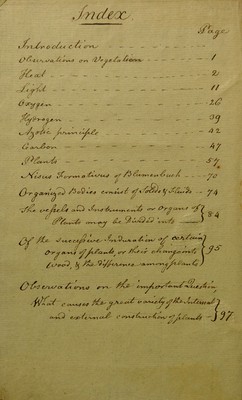 Index
Page
Introduction
Observations on Vegetation 1
Heat 2
Light 11
Oxygen 26
Hydrogen 39
Azotic principle 42
Carbon 47
Plants 57
Nisus Formativus of Blumenbach 70
Organized Bodies consist of Solids & Fluids 74
The vessels and Instruments or Organs of
Plants may be Divided into 84
Of the successive Induration of certain
organs of plants, or their change into 95
Wood, & the difference among plants
Observations on the important Question,
What causes the great variety of the Internal
and external construction of plants 97